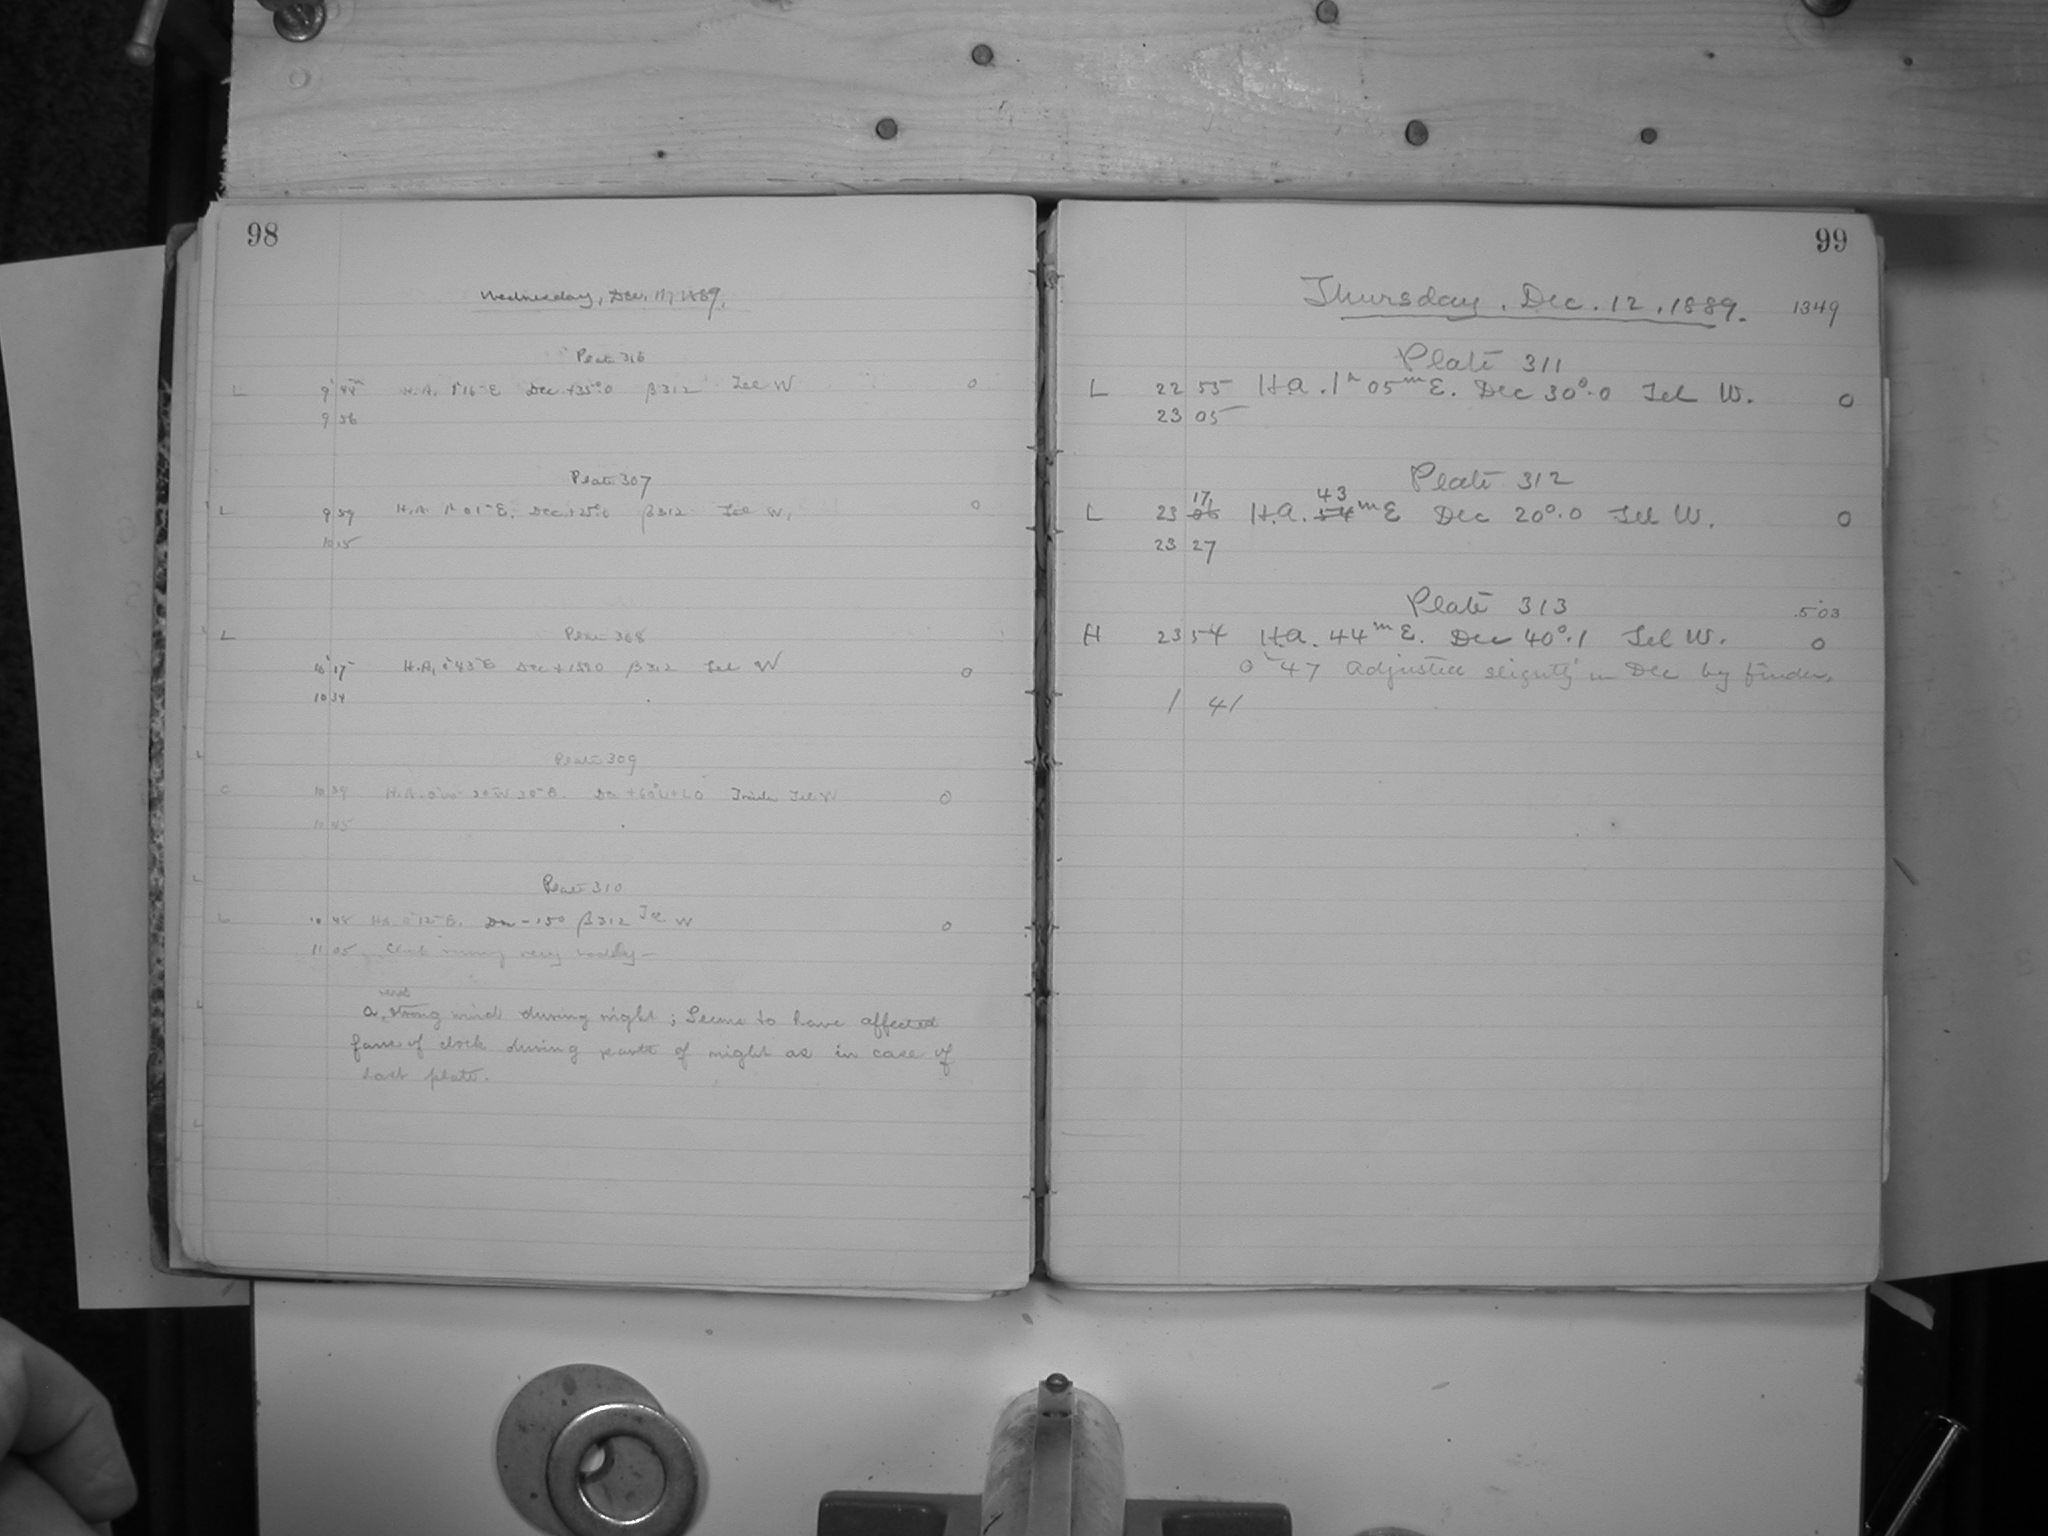 98
Wednesday, Dec. 11, 1889.
Plate 316
L 9 44m H.A. 1h 16m E Dec +35°0 β312 Tel W 0
9 56
Plate 307
L 9 59 H.A. 1h 01m E. Dec +25°0 β312 Tel W. 0
10 15
L Plate 308
10 17 H.A. 0h 43m E Dec +15°0 β312 Tel W 0
10 34
Plate 309
10 39 H.A. E. +60° Tel W 0
10 45
Plate 310
L 10 48 H.A. 0h 12m E. Dec -15° β312 Tel W 0
11 05 Clock running very badly—
a strong wind during night; Seems to have affected
fans of clock during part of night as in case of
last plate.
99
Thursday, Dec. 12, 1889. 1349
Plate 311
L 22 55 H.A. 1h 05m E. Dec 30°.0 Tel W. 0
23 05
Plate 312
17 43
L 23 06 H.A. 54 m E Dec 20°.0 Tel W. 0
23 27
Plate 313 5.03
H 23 54 H.A. 44m E. Dec 40°.1 Tel W. 0
0h 47 Adjusted slightly in Dec by finder.
1 41